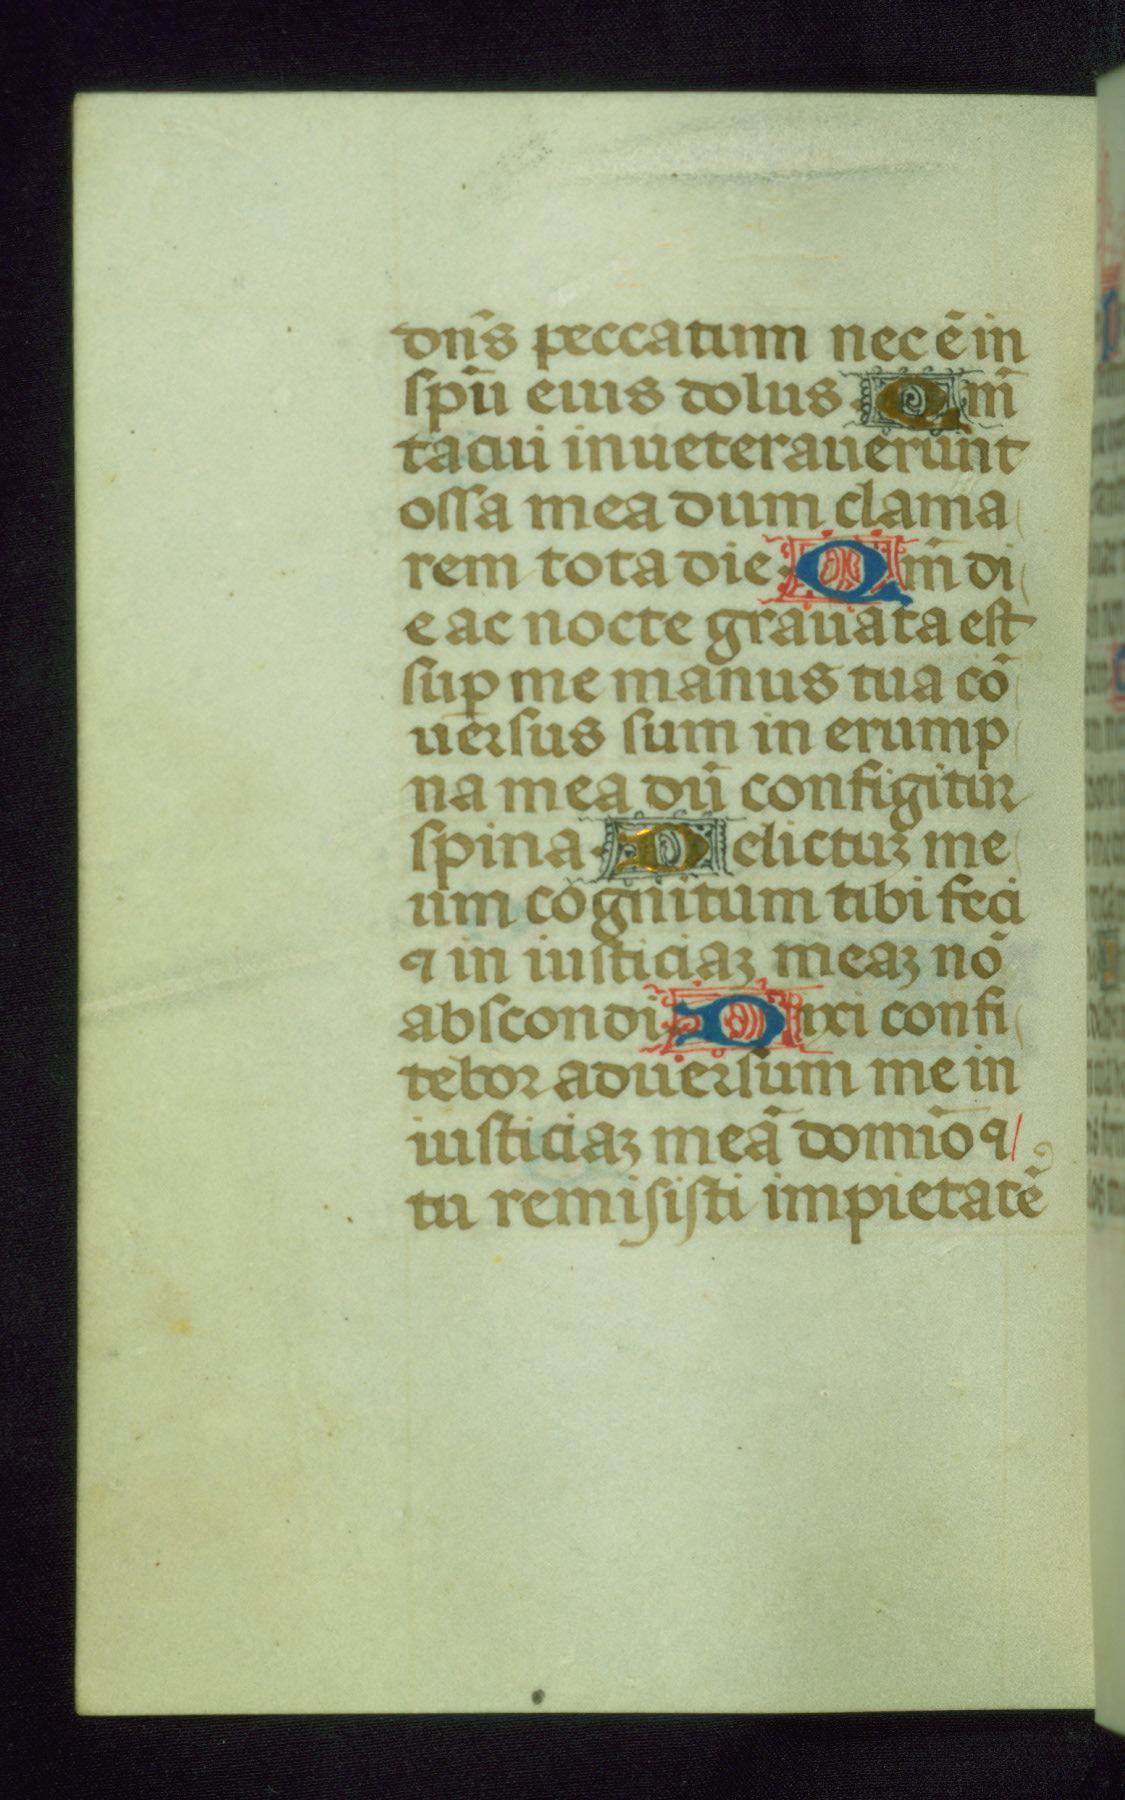 dn̄s peccatum nec ē in
spū eius dolus Qm̄
tacui inueterauerunt
ossa mea dum clama
rem tota die Qm̄ di
e ac nocte grauata est
sup me manus tua cō
uersus sum in erump
na mea dū configitur
spina Delictuꝫ me
um cognitum tibi feci
⁊ in iusticiaꝫ meaꝫ nō
abscondi Dixi confi
tebor aduersum me in
iusticiaꝫ meā domīo ⁊
tu remisisti impietatē